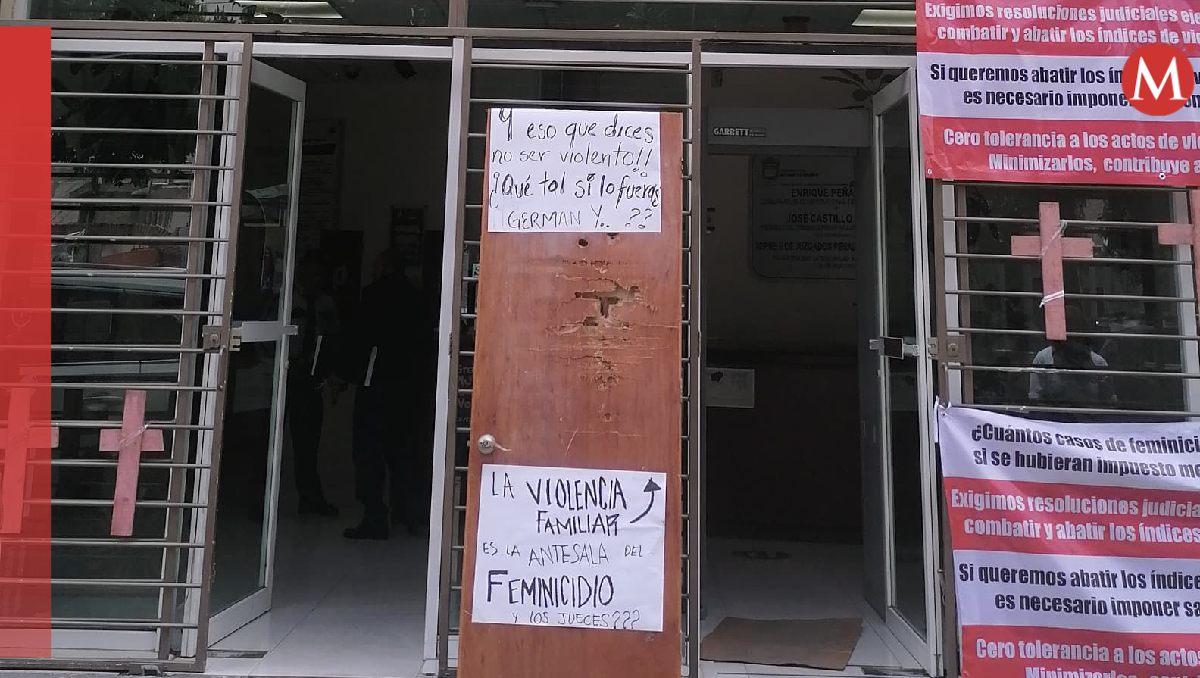 Y eso que dices
no ser violento!!
¿Qué tal si lo fueras
GERMAN Y.. ??
LA VIOLENCIA
FAMILIAR
ES LA ANTESALA DEL
FEMINICIDIO
Y LOS JUECES???
GARRETT
ENRIQUE PEÑA
JOSÉ CASTILLO
Exigimos resoluciones judiciales eje
combatir y abatir los índices de vio
Si queremos abatir los
es necesario imponer
Cero tolerancia a los actos de viol
Minimizarlos, contribuye a
M
¿Cuántos casos de feminici
si se hubieran impuesto me
Exigimos resoluciones judicia
combatir y abatir los índices
Si queremos abatir los índice
es necesario imponer sa
Cero tolerancia a los actos
Minimizarlos,